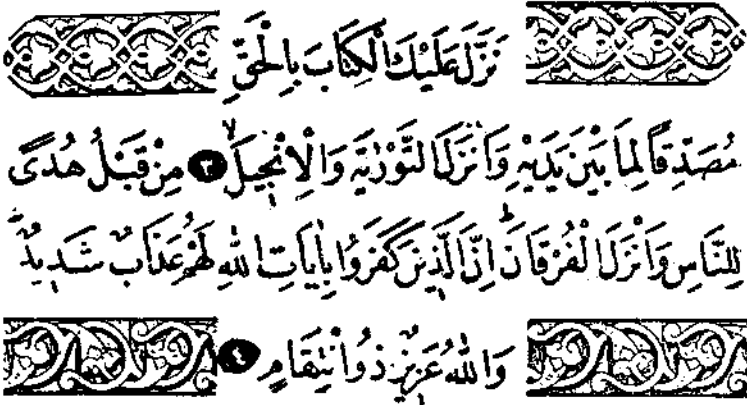 نَزَّلَ عَلَيْكَ الْكِتَابَ بِالْحَقِّ
مُصَدِّقًا لِمَا بَيْنَ يَدَيْهِ وَاَنْزَلَ التَّوْرٰيةَ وَالْاِنْجٖيلَۙ ﴿٣﴾ مِنْ قَبْلُ هُدًى
لِلنَّاسِ وَاَنْزَلَ الْفُرْقَانَۜ اِنَّ الَّذٖينَ كَفَرُوا بِاٰيَاتِ اللهِ لَهُمْ عَذَابٌ شَدٖيدٌۜ
وَاللهُ عَزٖيزٌ ذُو انْتِقَامٍ ﴿٤﴾